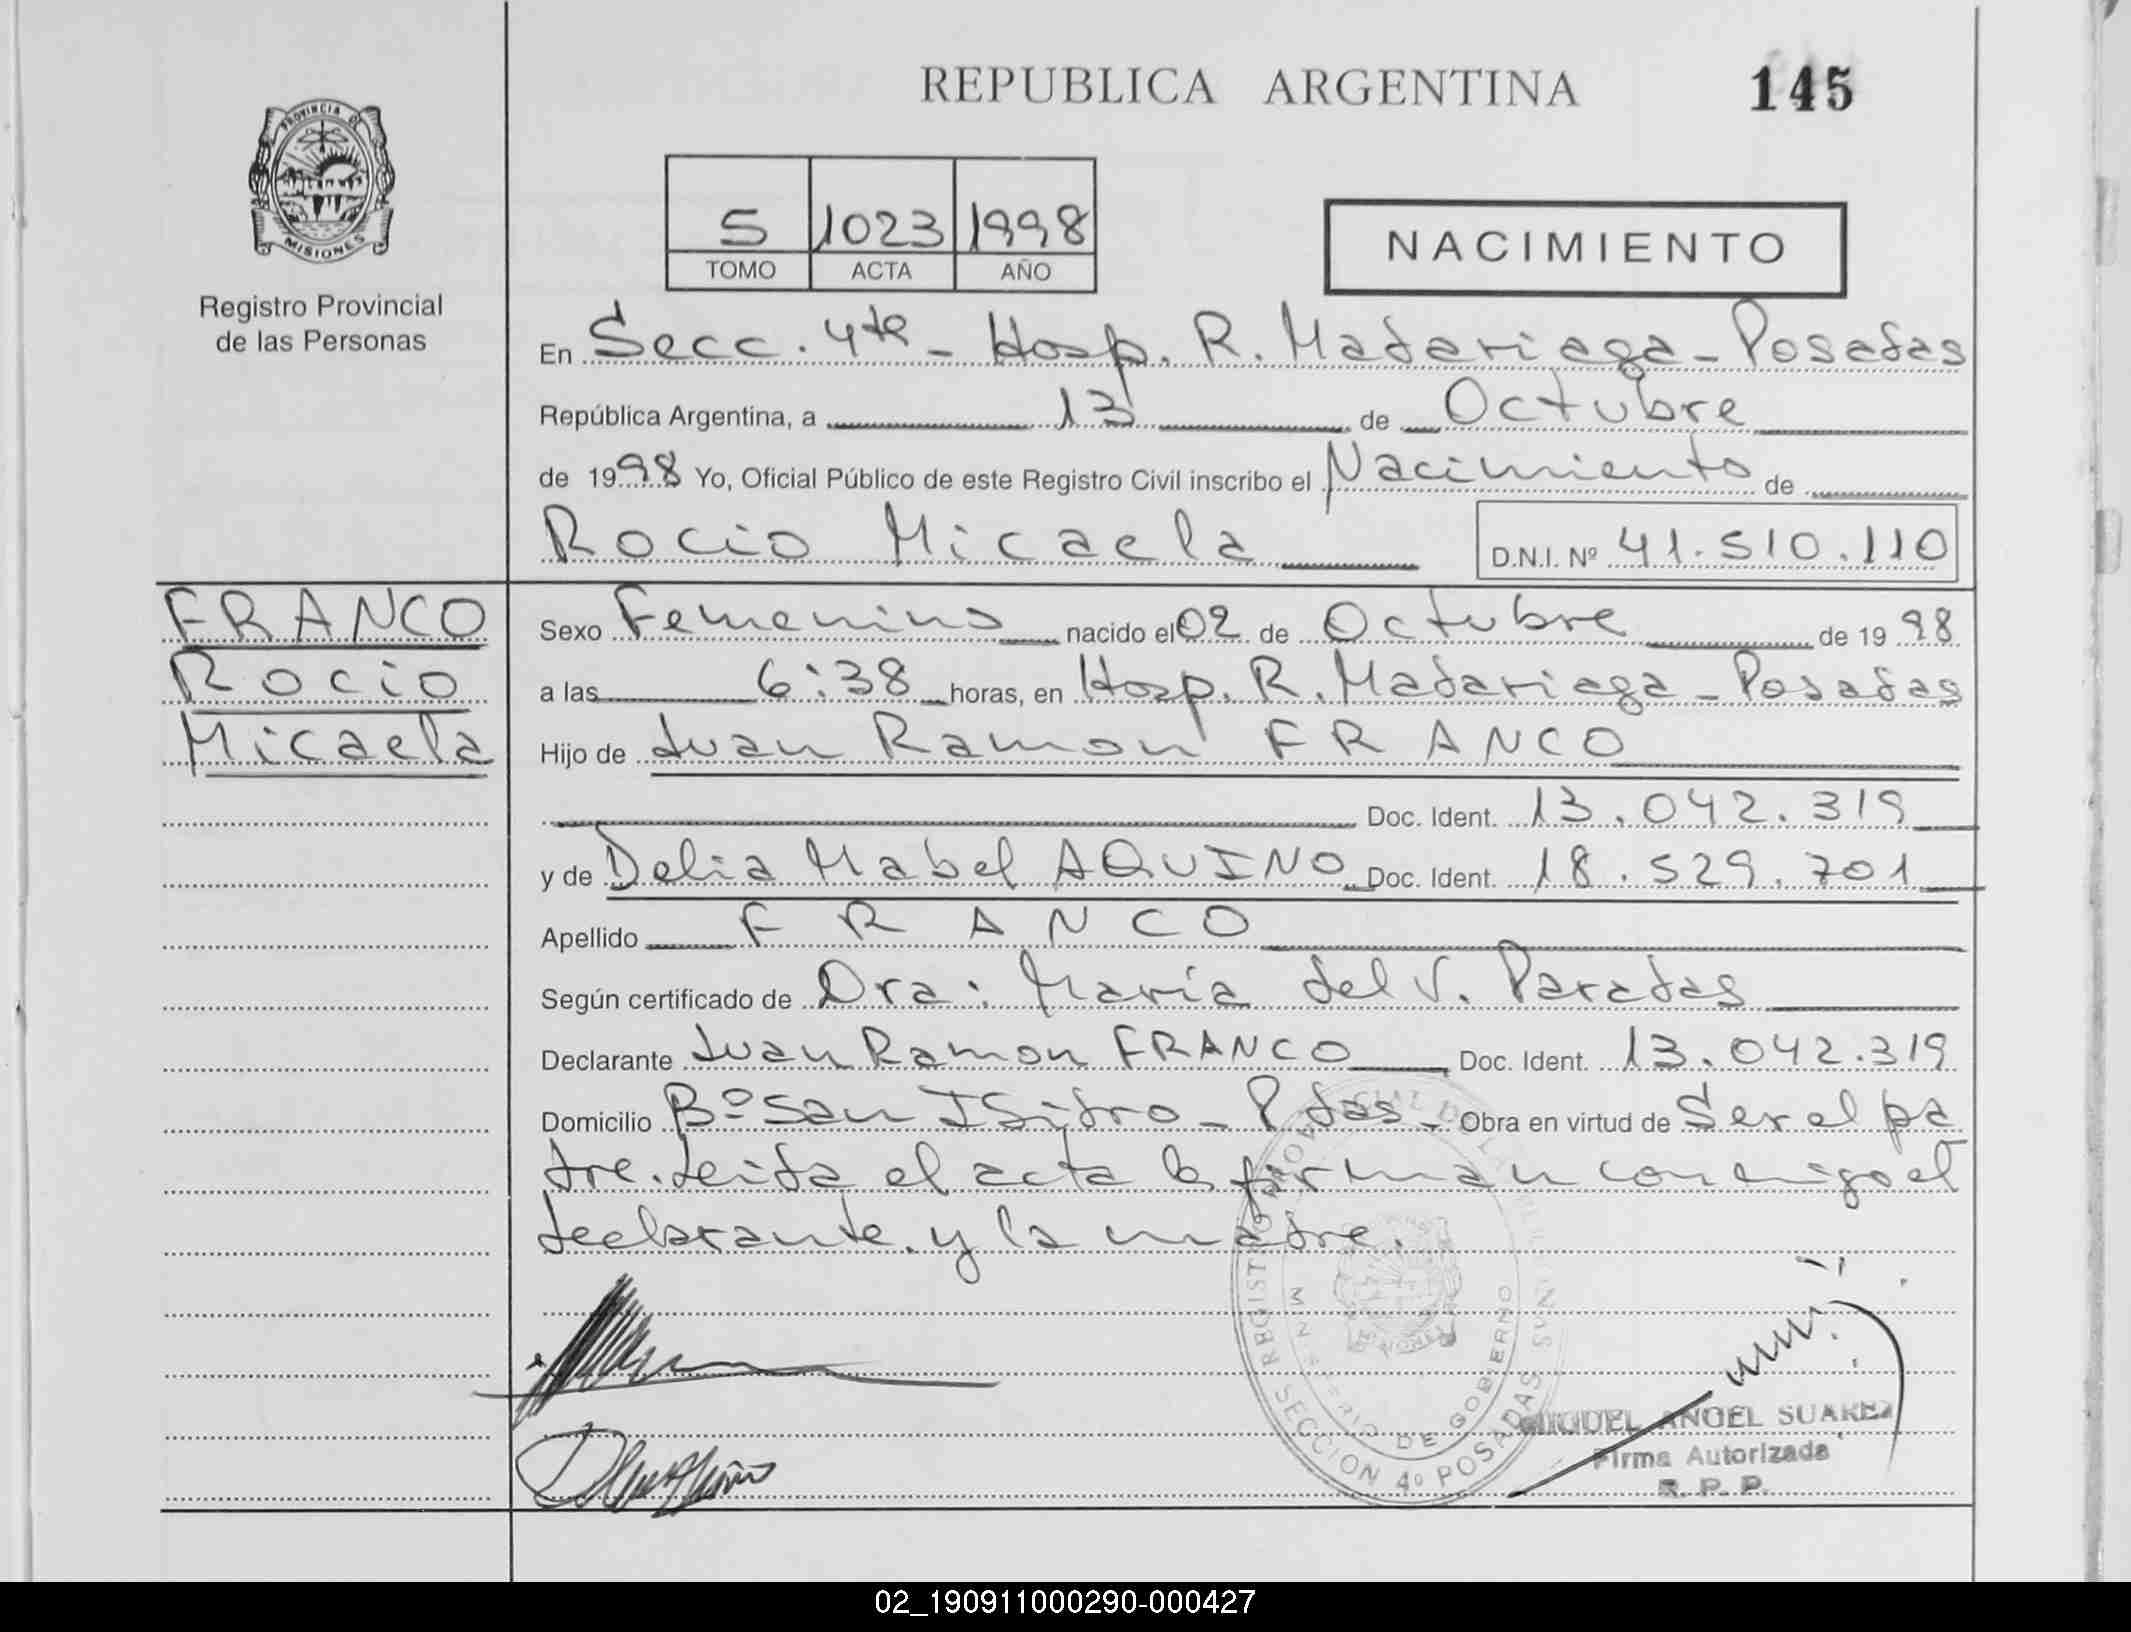 REPUBLICA ARGENTINA
145
PROVINCIA DE
MISIONES
Registro Provincial
de las Personas
5 1023 1998
TOMO ACTA AÑO
NACIMIENTO
En Secc. 4ta - Hosp. R. Madariaga - Posadas
República Argentina, a 13 de Octubre
de 1998 Yo, Oficial Público de este Registro Civil inscribo el Nacimiento de
Rocio Micaela D.N.I. Nº 41.510.110
FRANCO
Rocio
Micaela
Sexo Femenino nacido el 02 de Octubre de 1998
a las 6:38 horas, en Hosp. R. Madariaga - Posadas
Hijo de Juan Ramon FRANCO
Doc. Ident. 13.042.319
y de Delia Mabel AQUINO Doc. Ident. 18.529.701
Apellido FRANCO
Según certificado de Dra. María del V. Paradas
Declarante Juan Ramon FRANCO Doc. Ident. 13.042.319
Domicilio Bº San Isidro - Pdas - Obra en virtud de Ser el pa
dre. Leida el acta la firman conmigo el
declarante y la madre.
REGISTRO PROVINCIAL DE LAS PERSONAS
MINISTERIO DE GOBIERNO
SECCION 4º POSADAS
MIGUEL ANGEL SUAREZ
Firma Autorizada
R. P. P.
02_190911000290-000427